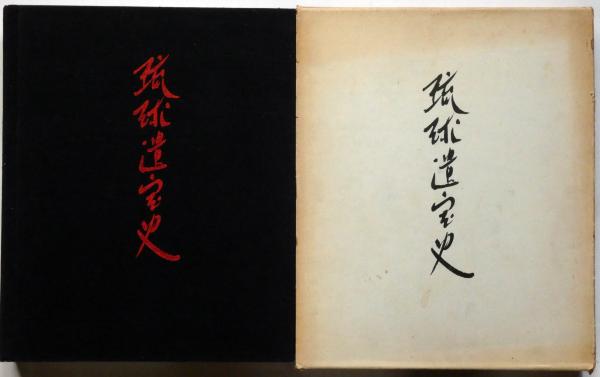 琉球遺宝史
琉球遺宝史